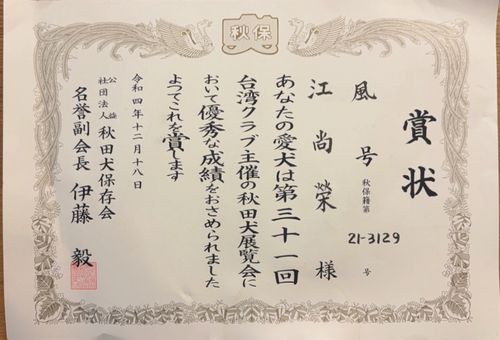 秋保
賞状
風号 秋保籍第 21-3129 号
江尚榮様
あなたの愛犬は第三十一回
台湾クラブ主催の秋田犬展覧会に
おいて優秀な成績をおさめられました
よつてこれを賞します
令和四年十二月十八日
公益社団法人 秋田犬保存会
名誉副会長 伊藤 毅